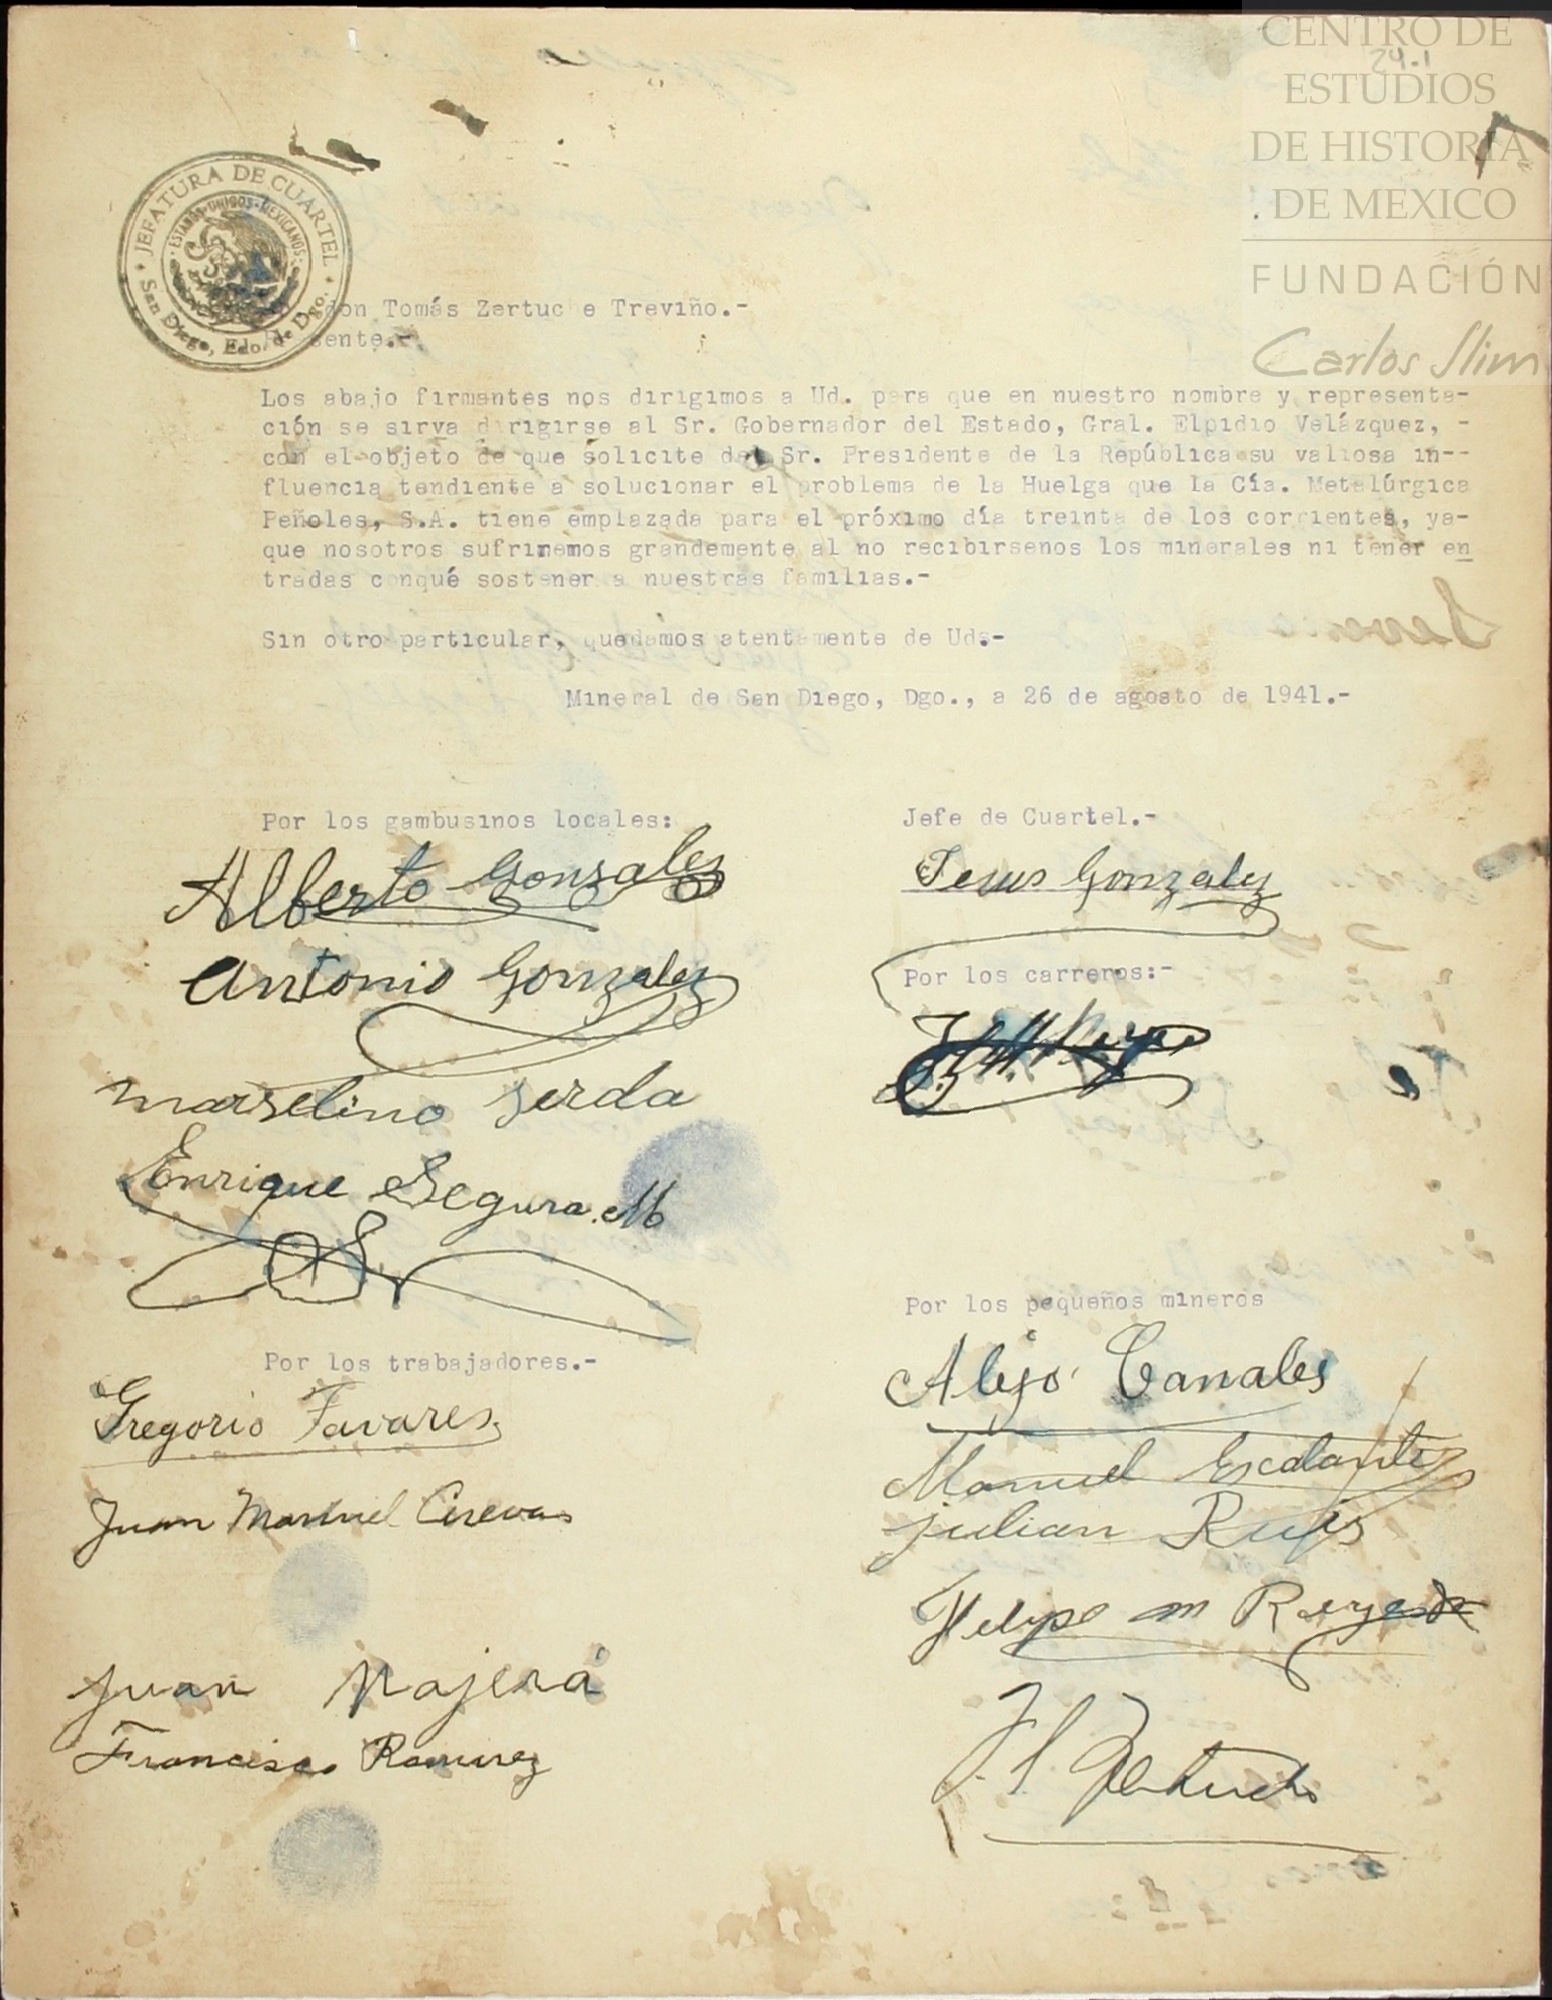 CENTRO DE
ESTUDIOS
DE HISTORIA
DE MEXICO
FUNDACIÓN
Carlos Slim
24.1
JEFATURA DE CUARTEL
ESTADOS UNIDOS MEXICANOS
San Diego, Edo. de Dgo.
don Tomás Zertuche Treviño.-
sente.-
Los abajo firmantes nos dirigimos a Ud. para que en nuestro nombre y representa-
ción se sirva dirigirse al Sr. Gobernador del Estado, Gral. Elpidio Velázquez, -
con el objeto de que solicite del Sr. Presidente de la República su valiosa in--
fluencia tendiente a solucionar el problema de la Huelga que la Cía. Metalúrgica
Peñoles, S.A. tiene emplazada para el próximo día treinta de los corrientes, ya-
que nosotros sufriremos grandemente al no recibírsenos los minerales ni tener en
tradas conqué sostener a nuestras familias.-
Sin otro particular, quedamos atentamente de Uds.-
Mineral de San Diego, Dgo., a 26 de agosto de 1941.-
Por los gambusinos locales:
Alberto Gonzalez
Antonio Gonzalez
marselino serda
Enrique Segura. M
Jefe de Cuartel.-
Jesus Gonzalez
Por los carreros:-
Por los trabajadores.-
Gregorio Tavares
Juan Manuel Cuevas
Juan Najera
Francisco Ramirez
Por los pequeños mineros
Alejo Canales
Manuel Escalante
julian Ruis
Felipe m Reyes